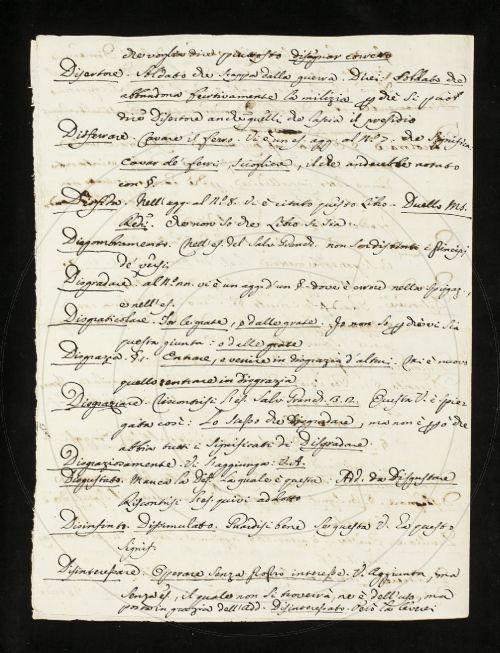 che voglia dire piuttosto disegnar
Disertore. Soldato che scappa dalla guerra. Direi: Soldato che
abbandona furtivamente la milizia che si può
dire Disertore anche quelli che lascia il presidio
Disferrare. Cavare il ferro. Vi è un es. agg. al N.° che significa
cavar de' ferri, sciogliere, il che anderebbe notato
con §.
Nell' agg. al N.° 8. Vi è citato questo Libro. Duello Ms.
Che non so che Libro si sia.
Disgombramento. Nell' es. del Salv. Granch. non son distinti i principj
de' versi.
Disgradare al N. vi è un agg. d'un §. dove è errore nella spiegaz.
e nell' es.
Disgraticolare. Tor le grate, o dalle grate. Io non so che vi sia
questa giunta: o dalle grate
Disgrazia §. 1. Entrare, o venire in disgrazia d'altrui. Vi è nuovo
quello entrare in disgrazia
Disgraziare. Riscontrisi l'es. Salv. Granch. 13. 12. Questa V. è spie-
gata così: Lo stesso che Disgradare, ma non è che
abbia tutti i significati di Disgradare
Disgraziosamente. Si aggiunga: V. A.
Disgustato. Manca la Dif. la quale è questa: Add. da Disgustare
Riscontrisi l'es. quivi addotto
Disinfinto. Dissimulato. Guardisi bene se questa V. ha questo
signif.
Disinteressare. Operare senza proprio interesse. V. Aggiunta, ma
senza es., il quale non si troverà, nè è dell' uso, ma
posta in grazia dell' Add. Disinteressato. Però la leverei